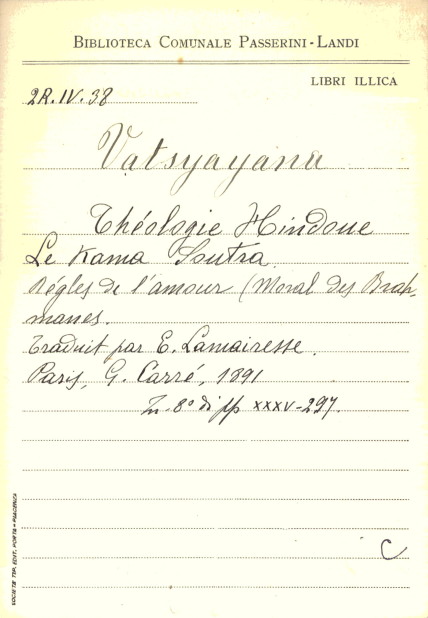 BIBLIOTECA COMUNALE PASSERINI-LANDI
LIBRI ILLICA
2R.IV.38
Vatsyayana
Théologie Hindoue
Le Kama Soutra
Régles de l'amour (Moral des Brah-
manes.
Traduit par E. Lamairesse.
Paris, G. Carré, 1891
In-8° di pp XXXV-297.
C
SOCIETÀ TIP. EDIT. PORTA - PIACENZA